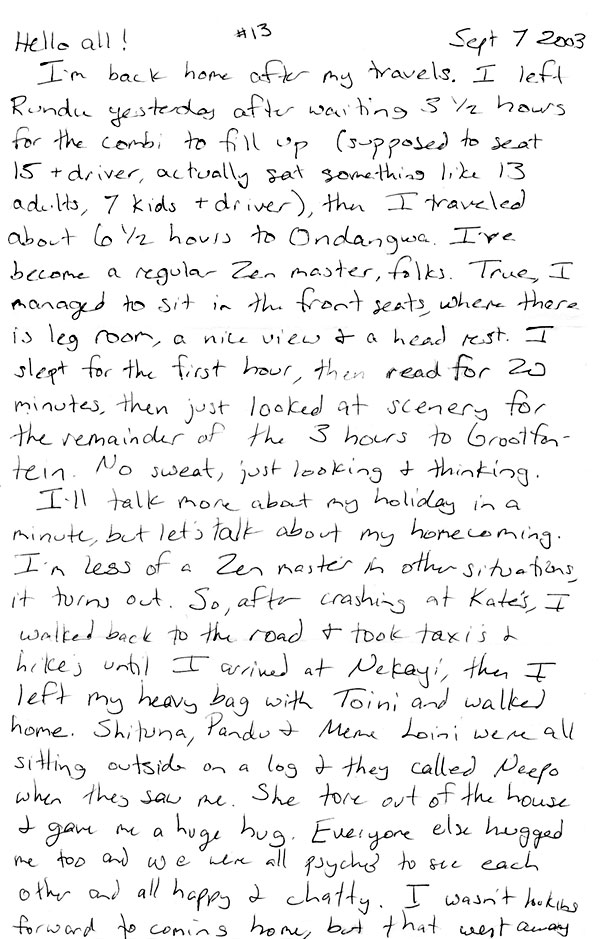 #13
Hello all! Sept 7 2003
I'm back home after my travels. I left
Rundu yesterday after waiting 3 1/2 hours
for the combi to fill up (supposed to seat
15 + driver, actually sat something like 13
adults, 7 kids + driver), then I traveled
about 6 1/2 hours to Ondangwa. I've
become a regular Zen master, folks. True, I
managed to sit in the front seats, where there
is leg room, a nice view & a head rest. I
slept for the first hour, then read for 20
minutes, then just looked at scenery for
the remainder of the 3 hours to Grootfon-
tein. No sweat, just looking & thinking.
I'll talk more about my holiday in a
minute, but let's talk about my homecoming.
I'm less of a Zen master in other situations,
it turns out. So, after crashing at Kate's, I
walked back to the road & took taxis &
hikes until I arrived at Nekayi, then I
left my heavy bag with Toini and walked
home. Shituna, Pandu & Meme Loini were all
sitting outside on a log & they called Neepo
when they saw me. She tore out of the house
& gave me a huge hug. Everyone else hugged
me too and we were all psyched to see each
other and all happy & chatty. I wasn't looking
forward to coming home, but that went away